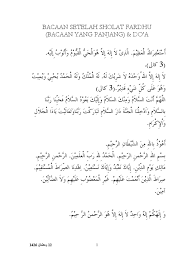 BACAAN SETELAH SHOLAT FARDHU
(BACAAN YANG PANJANG) & DO'A
أَسْتَغْفِرُ اللهَ الْعَظِيْمَ، الَّذِيْ لَا إِلَهَ إِلَّا هُوَ الْحَيُّ الْقَيُّوْمُ وَأَتُوْبُ إِلَيْهِ.
(3 كالي)
لَا إِلَهَ إِلَّا اللهُ وَحْدَهُ لَا شَرِيْكَ لَهُ، لَهُ الْمُلْكُ وَلَهُ الْحَمْدُ يُحْيِيْ وَيُمِيْتُ
وَهُوَ عَلَى كُلِّ شَيْءٍ قَدِيْرٌ. (3 كالي)
اَللَّهُمَّ أَنْتَ السَّلَامُ وَمِنْكَ السَّلَامُ وَإِلَيْكَ يَعُوْدُ السَّلَامُ فَحَيِّنَا رَبَّنَا
بِالسَّلَامِ وَأَدْخِلْنَا الْجَنَّةَ دَارَ السَّلَامِ تَبَارَكْتَ رَبَّنَا وَتَعَالَيْتَ يَا ذَا الْجَلَالِ
وَالْإِكْرَامِ.
أَعُوْذُ بِاللهِ مِنَ الشَّيْطَانِ الرَّجِيْمِ.
بِسْمِ اللهِ الرَّحْمَنِ الرَّحِيْمِ. اَلْحَمْدُ لِلَّهِ رَبِّ الْعَالَمِيْنَ. الرَّحْمَنِ الرَّحِيْمِ.
مَالِكِ يَوْمِ الدِّيْنِ. إِيَّاكَ نَعْبُدُ وَإِيَّاكَ نَسْتَعِيْنُ. اِهْدِنَا الصِّرَاطَ الْمُسْتَقِيْمَ.
صِرَاطَ الَّذِيْنَ أَنْعَمْتَ عَلَيْهِمْ. غَيْرِ الْمَغْضُوْبِ عَلَيْهِمْ وَلَا الضَّالِّيْنَ.
آمِيْن.
وَإِلَهُكُمْ إِلَهٌ وَاحِدٌ لَا إِلَهَ إِلَّا هُوَ الرَّحْمَنُ الرَّحِيْمُ.
1